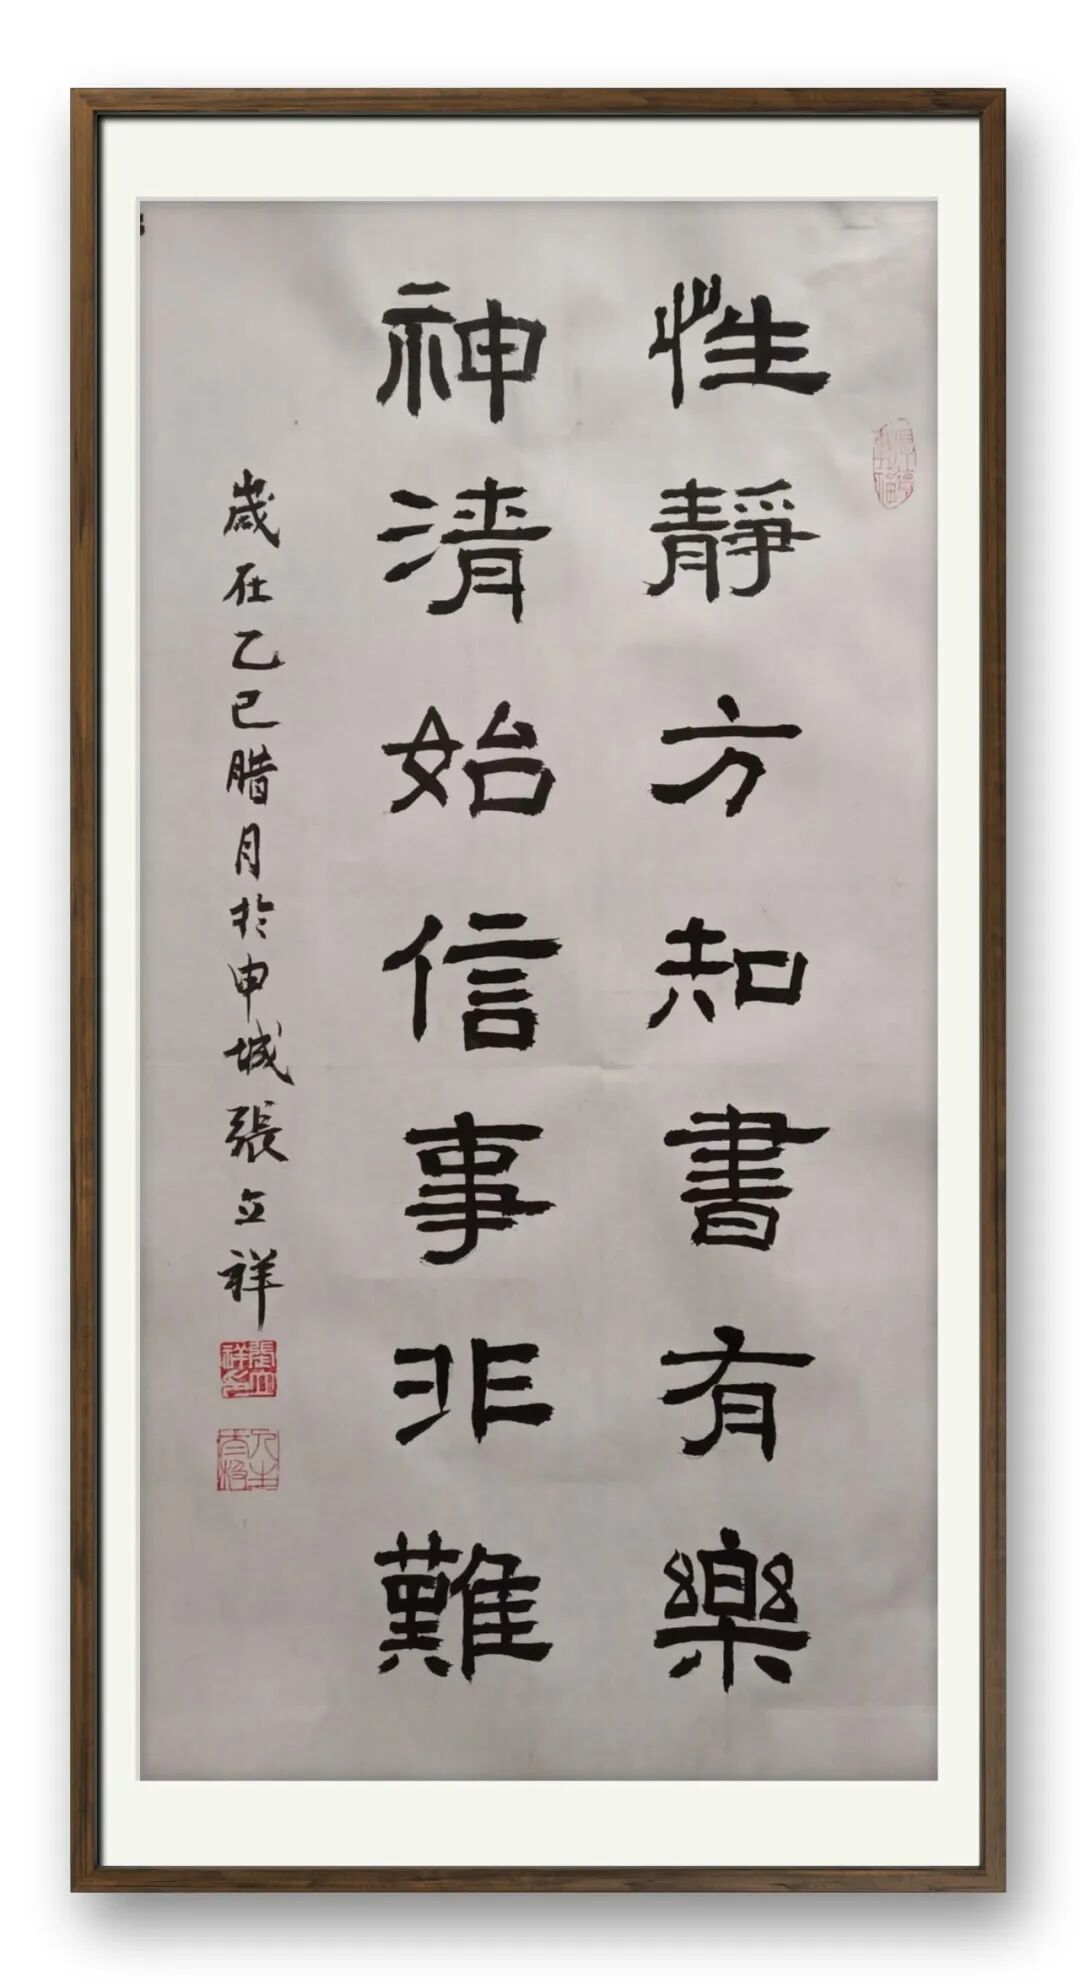 性靜方知書有樂
神清始信事非難
歲在乙巳腊月於申城張立祥